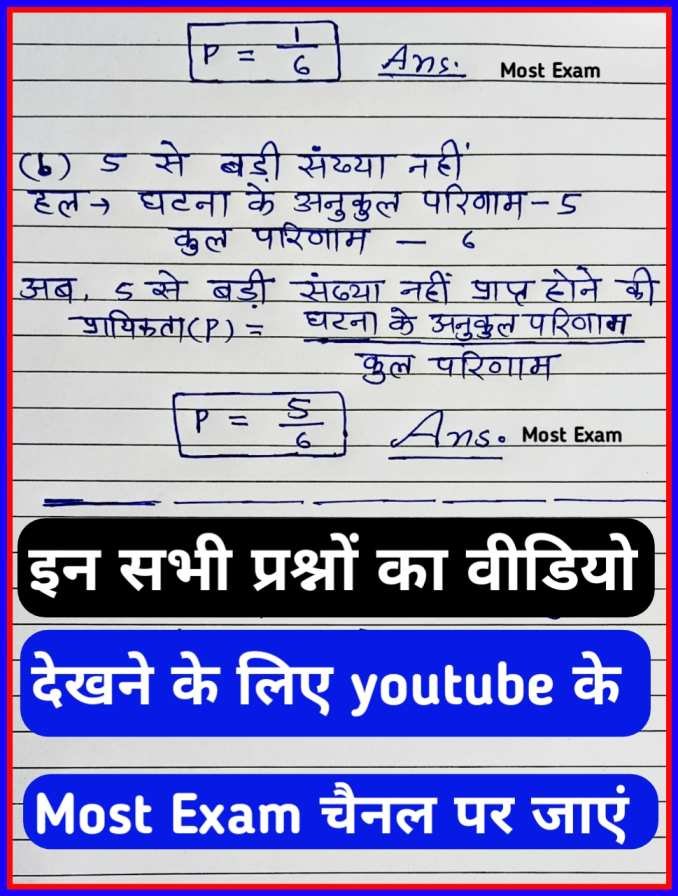 P = 1/6 Ans. Most Exam
(b) 5 से बड़ी संख्या नहीं
हल → घटना के अनुकुल परिणाम - 5
कुल परिणाम — 6
अब, 5 से बड़ी संख्या नहीं प्राप्त होने की
प्रायिकता(P) = घटना के अनुकुल परिणाम
कुल परिणाम
P = 5/6 Ans. Most Exam
इन सभी प्रश्नों का वीडियो
देखने के लिए youtube के
Most Exam चैनल पर जाएं